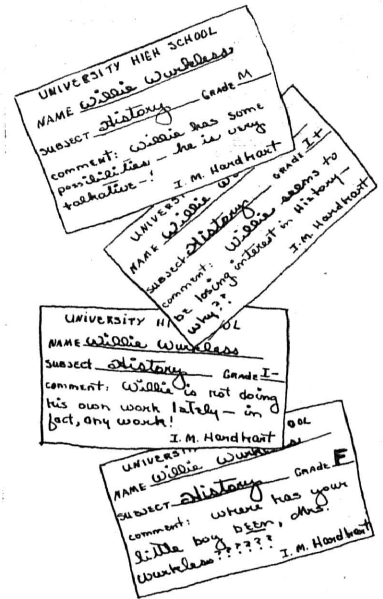 UNIVERSITY HIGH SCHOOL
NAME Willie Wurkless
SUBJECT History GRADE M
comment: Willie has some
possibilities — he is very
talkative—!
I. M. Hardhart
UNIVERSI
NAME Willie Wu
SUBJECT History GRADE I+
comment: Willie seems to
be losing interest in History—
why??
I. M. Hardhart
UNIVERSITY HI OL
NAME Willie Wurkless
SUBJECT History GRADE I-
comment: Willie is not doing
his own work lately — in
fact, any work!
I. M. Hardhart
UNIVERSI OOL
NAME Willie Wurkless
SUBJECT History GRADE F
comment: where has your
little boy been, Mrs.
Wurkless??????
I. M. Hardhart